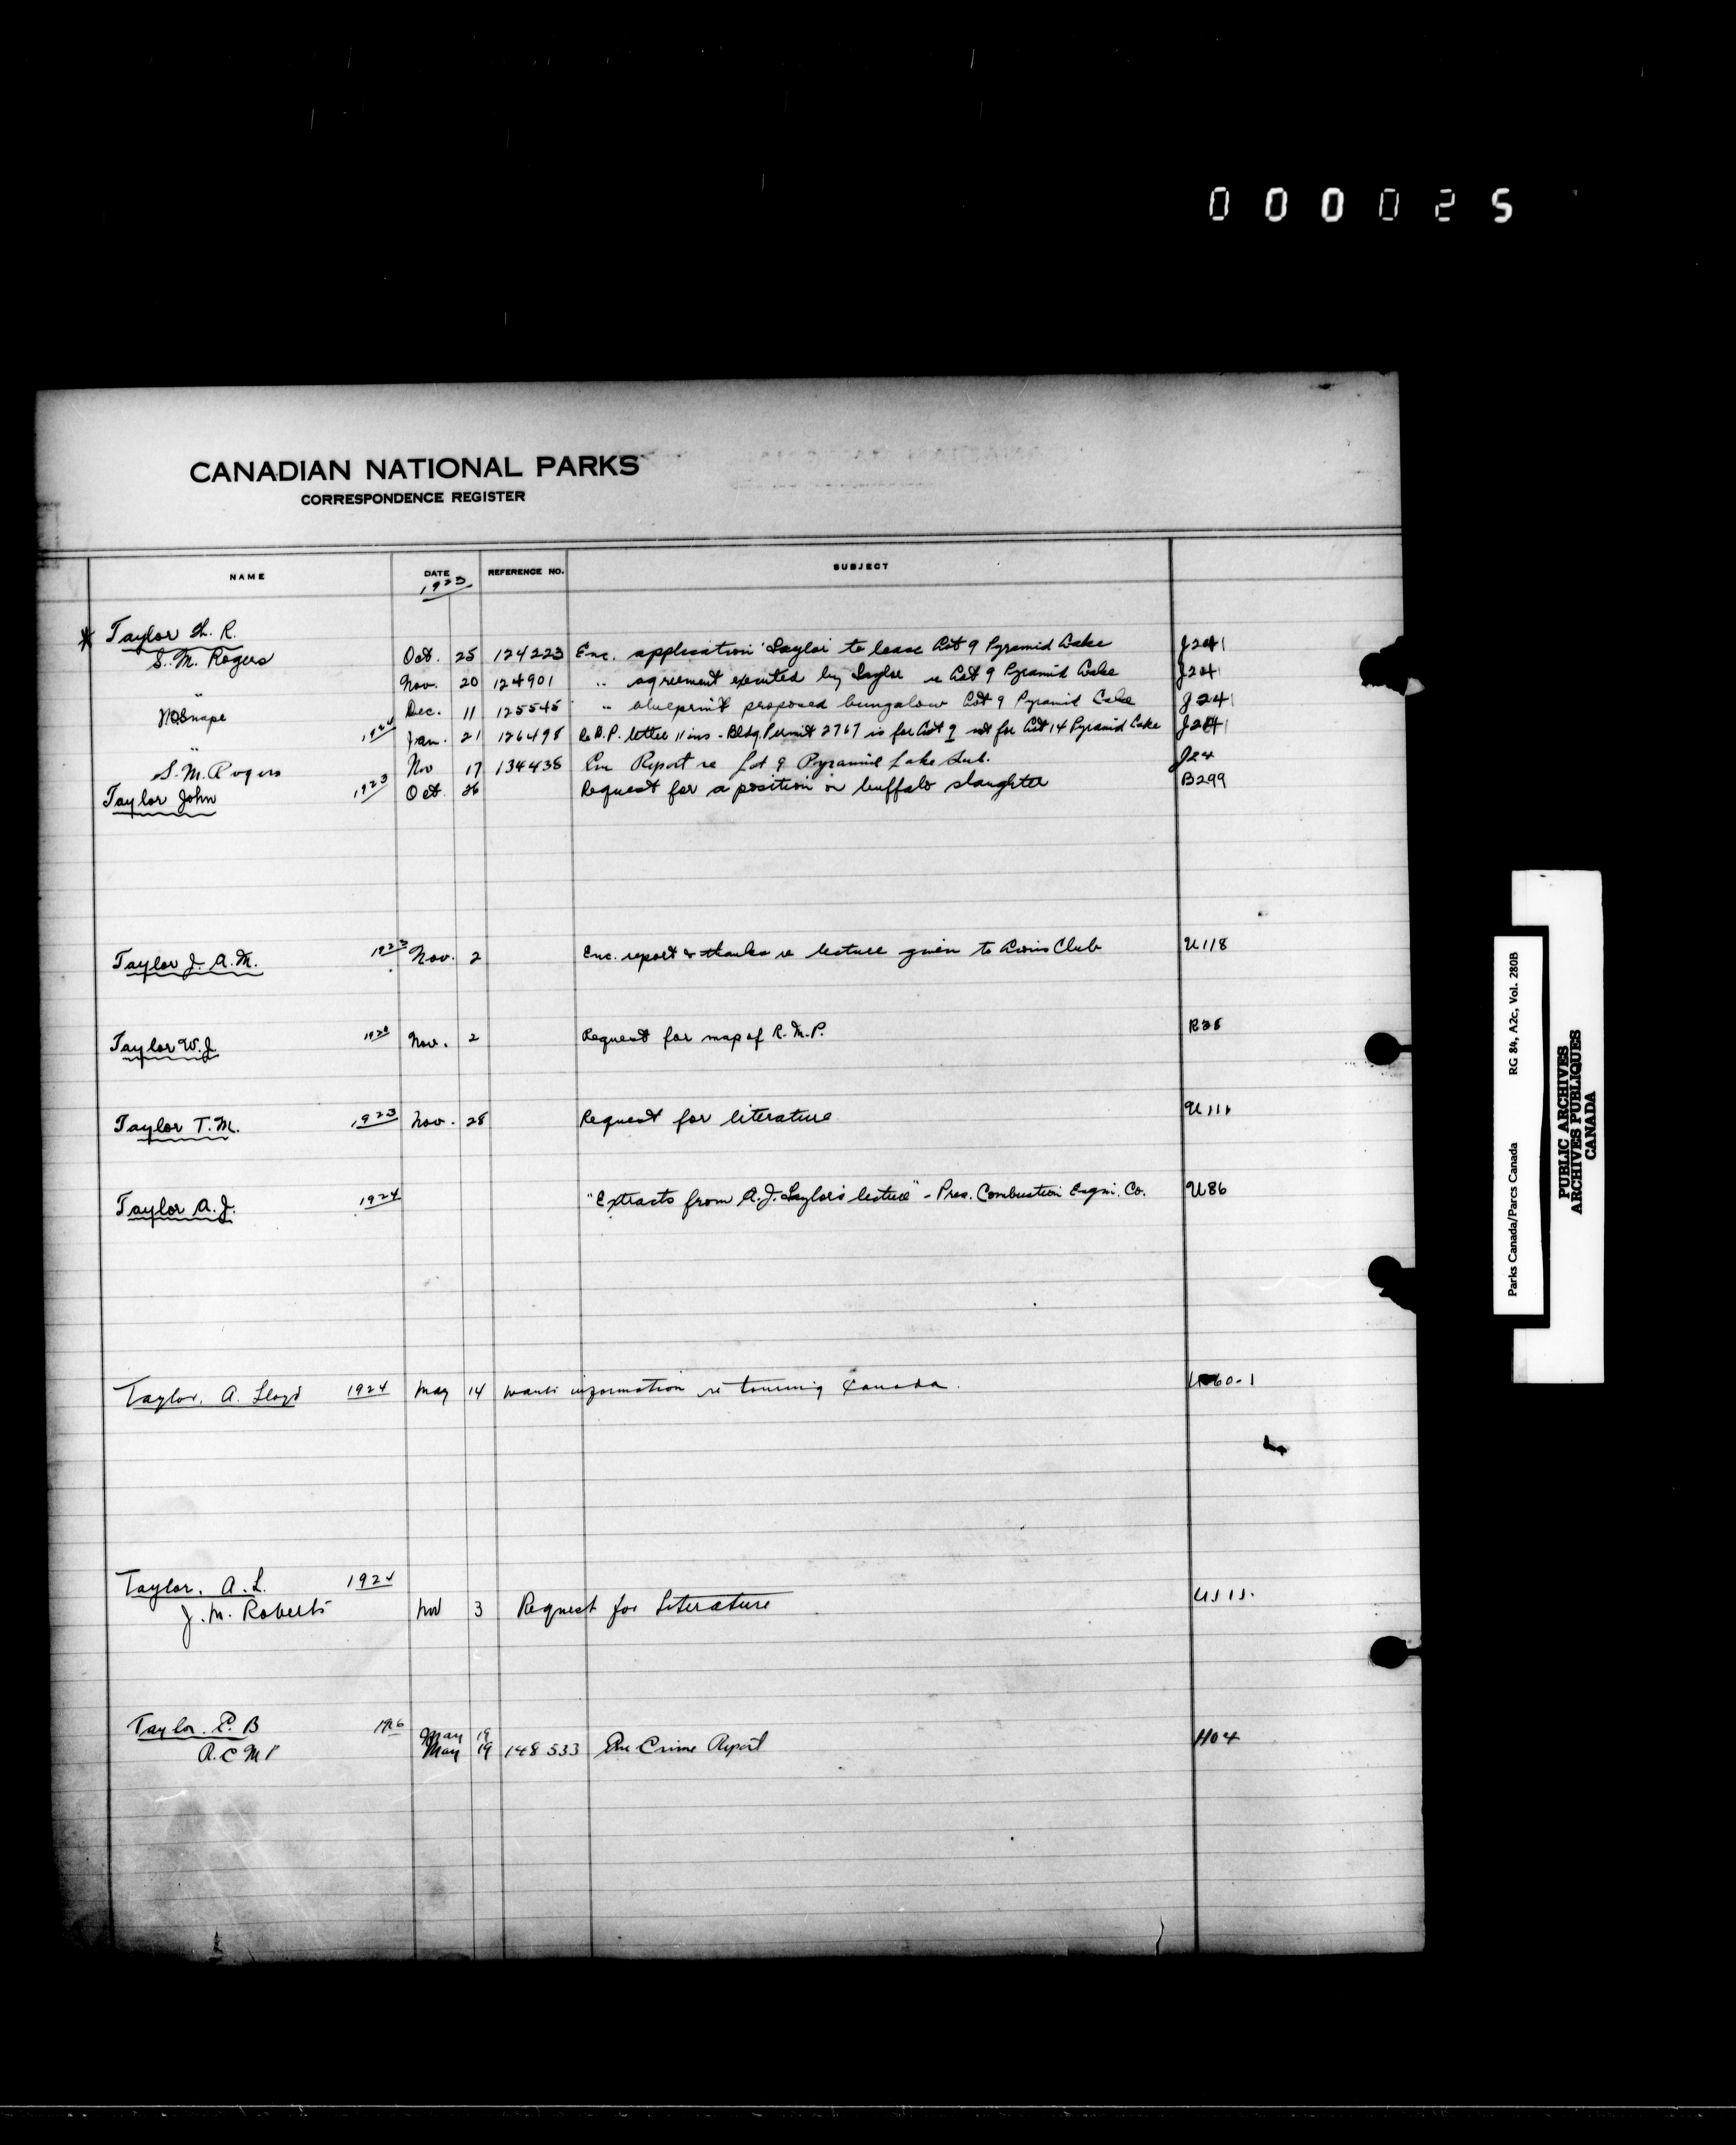 000025
CANADIAN NATIONAL PARKS
CORRESPONDENCE REGISTER
NAME DATE REFERENCE NO. SUBJECT
1923
* Taylor H. R.
S. M. Rogers Oct. 25 124223 Enc. application Taylor to lease Lot 9 Pyramid Lake J241
" Nov. 20 124901 " agreement executed by Taylor re Lot 9 Pyramid Lake J241
Snape Dec. 11 125545 " blueprint proposed bungalow Lot 9 Pyramid Lake J241
" 1924 Jan. 21 126498 Re D.P. letter 11 ins - Bldg. Permit 2767 is for Lot 9 not for Lot 14 Pyramid Lake J241
S. M. Rogers Nov 17 134438 Enc Report re Lot 9 Pyramid Lake Sub. J24
Taylor John 1923 Oct. 26 Request for a position in buffalo slaughter B299
Taylor J. A. M. 1923 Nov. 2 Enc. report & thanks re lecture given to Club U118
Taylor W. J. Nov. 2 Request for map of R. M. P.
Taylor T. M. 1923 Nov. 28 Request for literature U111
Taylor A. J. 1924 "Extracts from A. J. Taylor's lecture" - Pres. Combustion Engin. Co. U86
Taylor, A. Lloyd 1924 May 14 Wants information re touring Canada. 60-1
Taylor, A. L. 1924
J. M. Roberts Nov 3 Request for Literature
Taylor. E. B 1926 May 19
R. C M P May 19 148533 Enc Crime Report H04
Parks Canada/Parcs Canada RG 84, A2c, Vol. 280B
PUBLIC ARCHIVES
ARCHIVES PUBLIQUES
CANADA